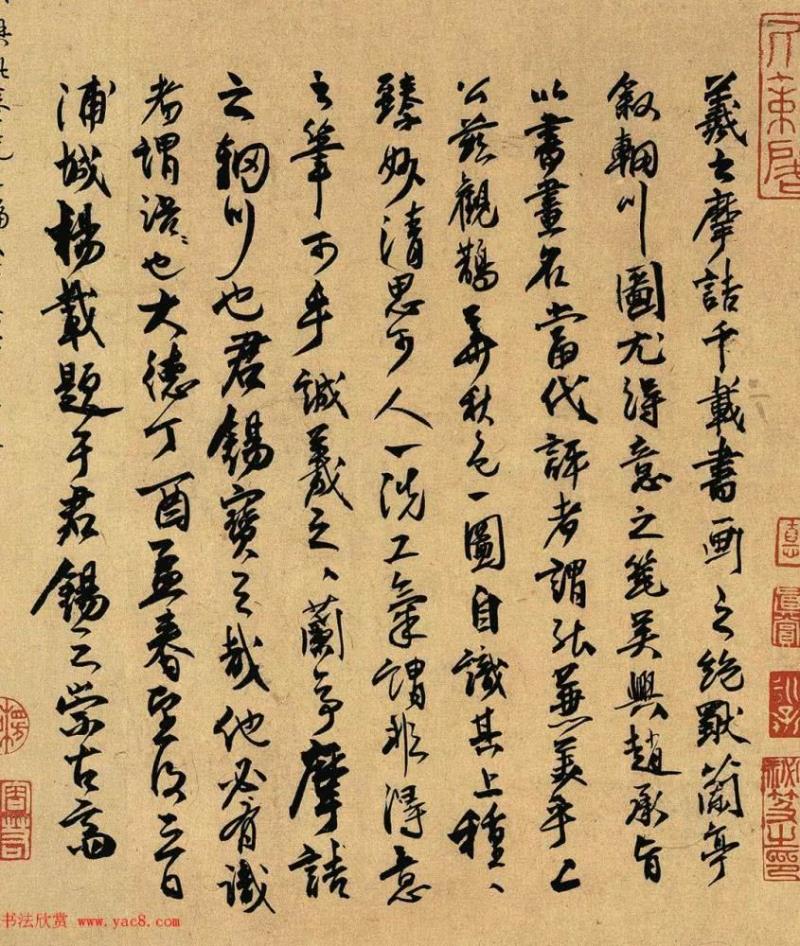 羲之摩詰千載書画之絶獨蘭亭
敘輞川圖尤得意之筆吳興趙承旨
以書畫名當代評者謂能兼美乎二
公茲觀鵲華秋色一圖自識其上種〻
臻妙清思可人一洗工氣謂非得意
之筆可乎誠羲之〻蘭亭摩詰
之輞川也君錫寶之哉他必有識
者謂語〻也大德丁酉孟春望後三日
浦城楊載題于君錫之崇古齋
书法欣赏 www.yac8.com